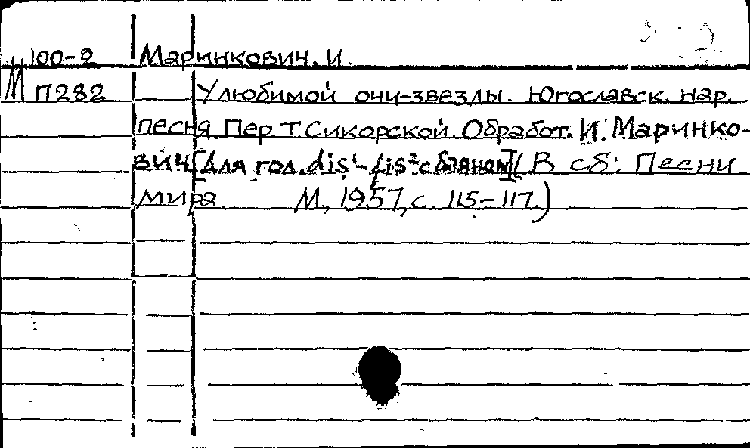 100-2 Маринкович, И.
М П282 У любимой очи-звезды. Югославск. нар.
песня Пер. Т. Сикорской. Обработ. И. Маринко-
вич [Для гол. dis¹-fis² с баяном] (В сб: Песни
мира М., 1957, с. 115-117.)